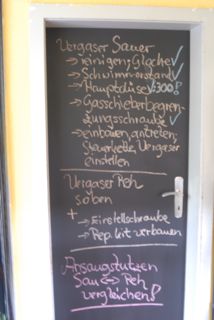 Vergaser Sauer
→ reinigen; Glocke ✓
→ Schwimmerstand ✓
→ Hauptdüse ✓ 300 !
→ Gasschieberbegren-
zungsschraube ✓
→ einbauen, antreten;
Steuerkette, Vergaser
einstellen
Vergaser Reh
s. oben
+ → Einstellschraube
→ Rep. kit verbauen
Ansaugstutzen
Sau ↔ Reh
vergleichen!